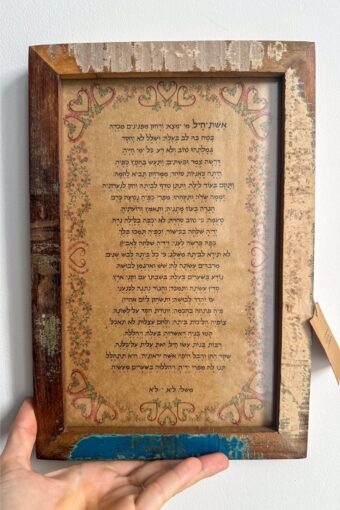 אשת חיל מי ימצא, ורחוק מפנינים מכרה
בטח בה לב בעלה, ושלל לא יחסר
גמלתהו טוב ולא רע, כל ימי חייה
דרשה צמר ופשתים, ותעש בחפץ כפיה
היתה כאניות סוחר, ממרחק תביא לחמה
ותקם בעוד לילה, ותתן טרף לביתה וחוק לנערותיה
זממה שדה ותקחהו, מפרי כפיה נטעה כרם
חגרה בעוז מתניה, ותאמץ זרועותיה
טעמה כי טוב סחרה, לא יכבה בלילה נרה
ידיה שלחה בכישור, וכפיה תמכו פלך
כפה פרשה לעני, וידיה שלחה לאביון
לא תירא לביתה משלג, כי כל ביתה לבוש שנים
מרבדים עשתה לה, שש וארגמן לבושה
נודע בשערים בעלה, בשבתו עם זקני ארץ
סדין עשתה ותמכור, וחגור נתנה לכנעני
עוז והדר לבושה, ותשחק ליום אחרון
פיה פתחה בחכמה, ותורת חסד על לשונה
צופיה הליכות ביתה, ולחם עצלות לא תאכל
קמו בניה ויאשרוה, בעלה ויהללה
רבות בנות עשו חיל, ואת עלית על כלנה
שקר החן והבל היופי אשה יראת ה' היא תתהלל
תנו לה מפרי ידיה, ויהללוה בשערים מעשיה
משלי ל"א, י'-ל"א